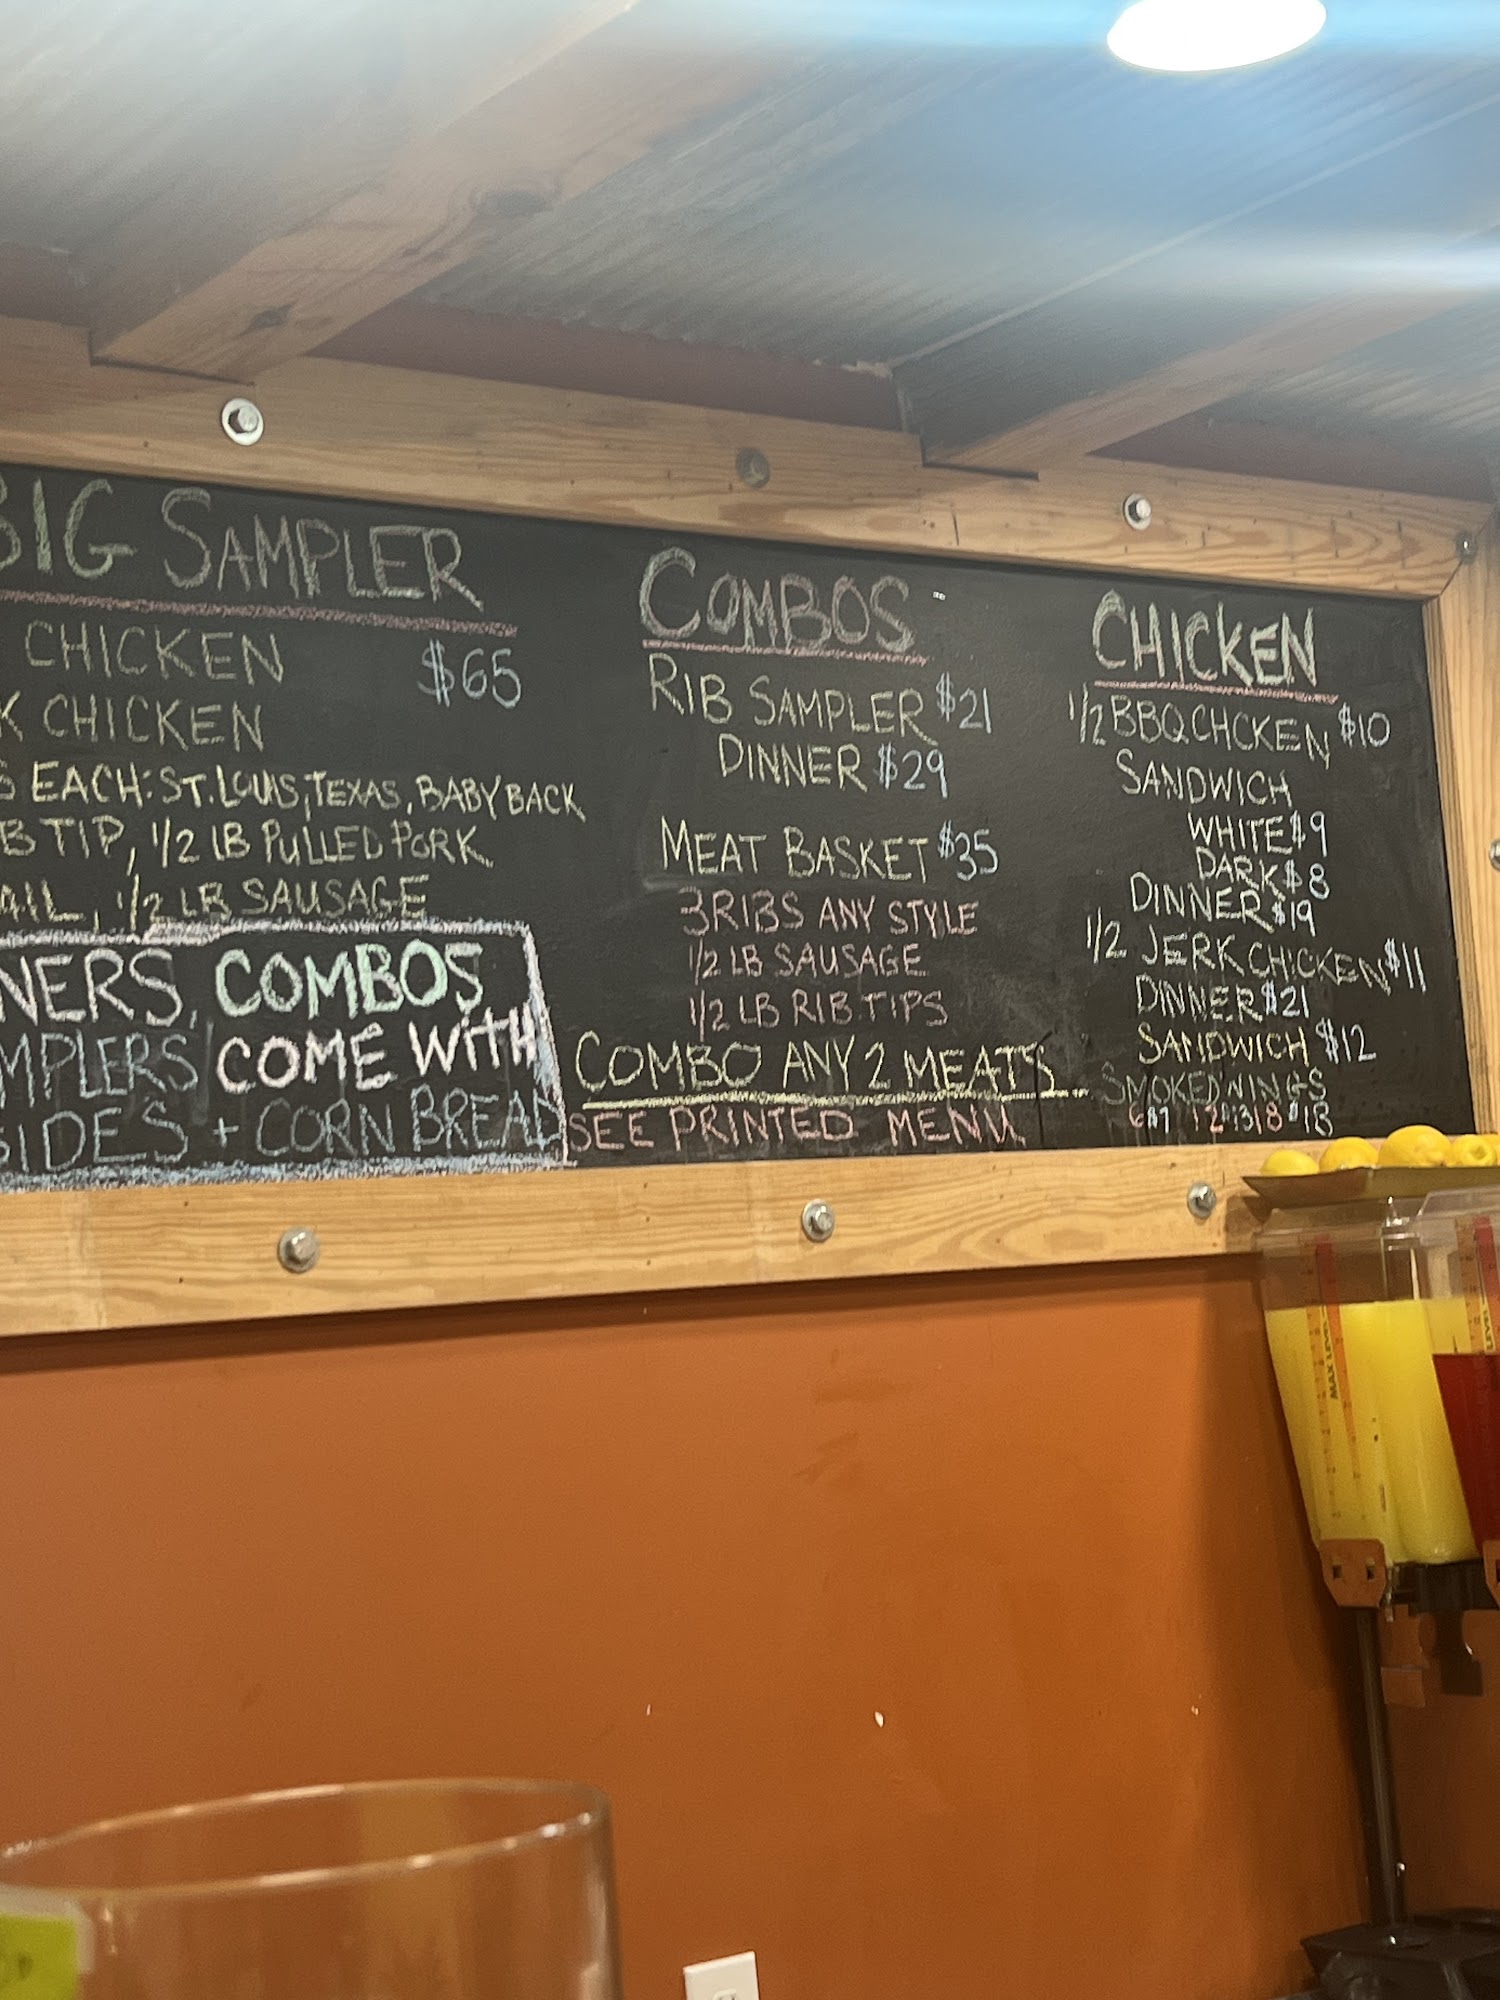 BIG SAMPLER
CHICKEN $65
K CHICKEN
S EACH: ST. LOUIS, TEXAS, BABY BACK
B TIP, 1/2 LB PULLED PORK
AIL, 1/2 LB SAUSAGE
NERS, COMBOS
MPLERS COME WITH
SIDES + CORN BREAD
COMBOS
RIB SAMPLER $21
DINNER $29
MEAT BASKET $35
3 RIBS ANY STYLE
1/2 LB SAUSAGE
1/2 LB RIB TIPS
COMBO ANY 2 MEATS
SEE PRINTED MENU
CHICKEN
1/2 BBQ CHCKEN $10
SANDWICH
WHITE $9
DARK $8
DINNER $19
1/2 JERK CHICKEN $11
DINNER $21
SANDWICH $12
SMOKED WINGS
6 $7 12 $13 18 $18
MAX LEVEL